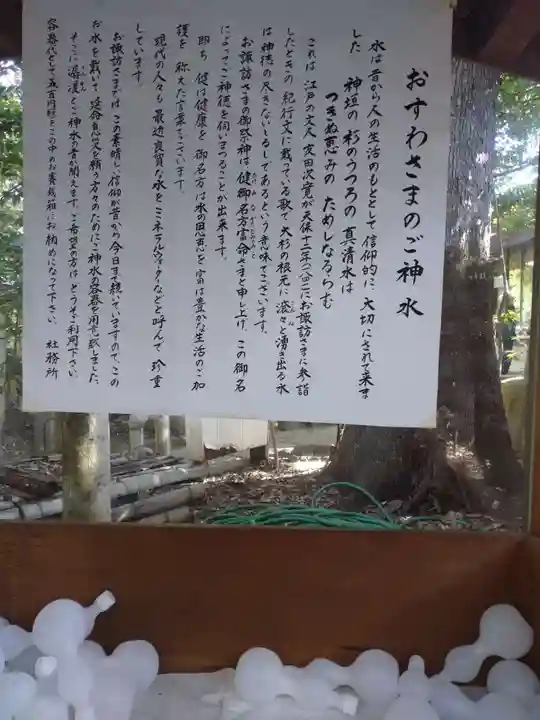 おすわさまのご神水
水は昔から人の生活のもととして信仰的に、大切にされて来ま
した　神垣の　杉のうつろの　真清水は
つきぬ恵みの　ためしなるらむ
これは、江戸の文人、友田次寛が天保十二年にお諏訪さまに参詣
したときの紀行文に載っている歌で、大杉の根元に滾々と湧き出る水
は神徳の尽きないしるしであるという意味でございます。
お諏訪さまの御祭神は、健御名方富命さまと申し上げ、この御名
によってご神徳を伺いまつることが出来ます。
即ち、健は健康を、御名方は水の恩恵を、富は豊かな生活のご加
護を、称えた言葉でございます。
現代の人々も、最近、良質な水をミネラルウォーターなどと呼んで、珍重
しています。
お諏訪さまでは、この素晴しい信仰が昔から今日まで続いていますので、この
お水を戴いて、延命息災を願う方々のために、ご神水の容器を用意致しました。
そこに滾滾と、ご神水の音が聞えます。ご希望の方は、どうぞご利用下さい。
容器代として、弐百円程をこの中のお賽銭箱にお納めになって下さい。　社務所